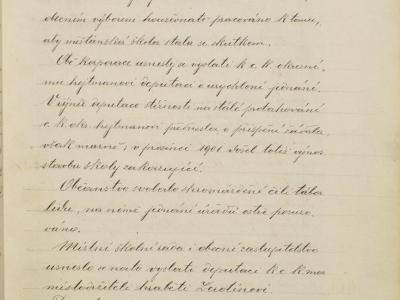 obecním výborem houževnatě pracováno k tomu,
aby měšťanská škola stala se skutkem.
Obě korporace usnesly se vyslati k c. k. okresní-
mu hejtmanovi deputaci o urychlení jednání.
Vyjmíc deputace stížnosti na stálé protahování
c. k. okr. hejtmanovi přednesla, o přispění žádala,
však marně; v prosinci 1901 došel totiž výnos
stavbu školy zakazující.
Občanstvo svolalo shromáždění čili tábor
lidu, na němž jednání úřadů ostře posuzo-
váno.
Místní školní rada i obecní zastupitelstvo
usneslo se na to vyslati deputaci k c. k. mor.
místodržitele hraběti Žerotínovi.